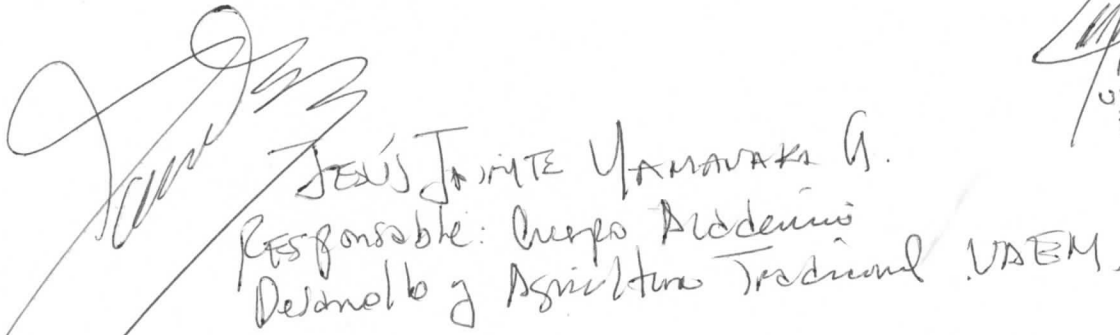 JESÚS JAIMTE YAMANAKA G.
Responsable: Cuerpo Académico
Desarrollo y Agricultura Tradicional .UAEM.